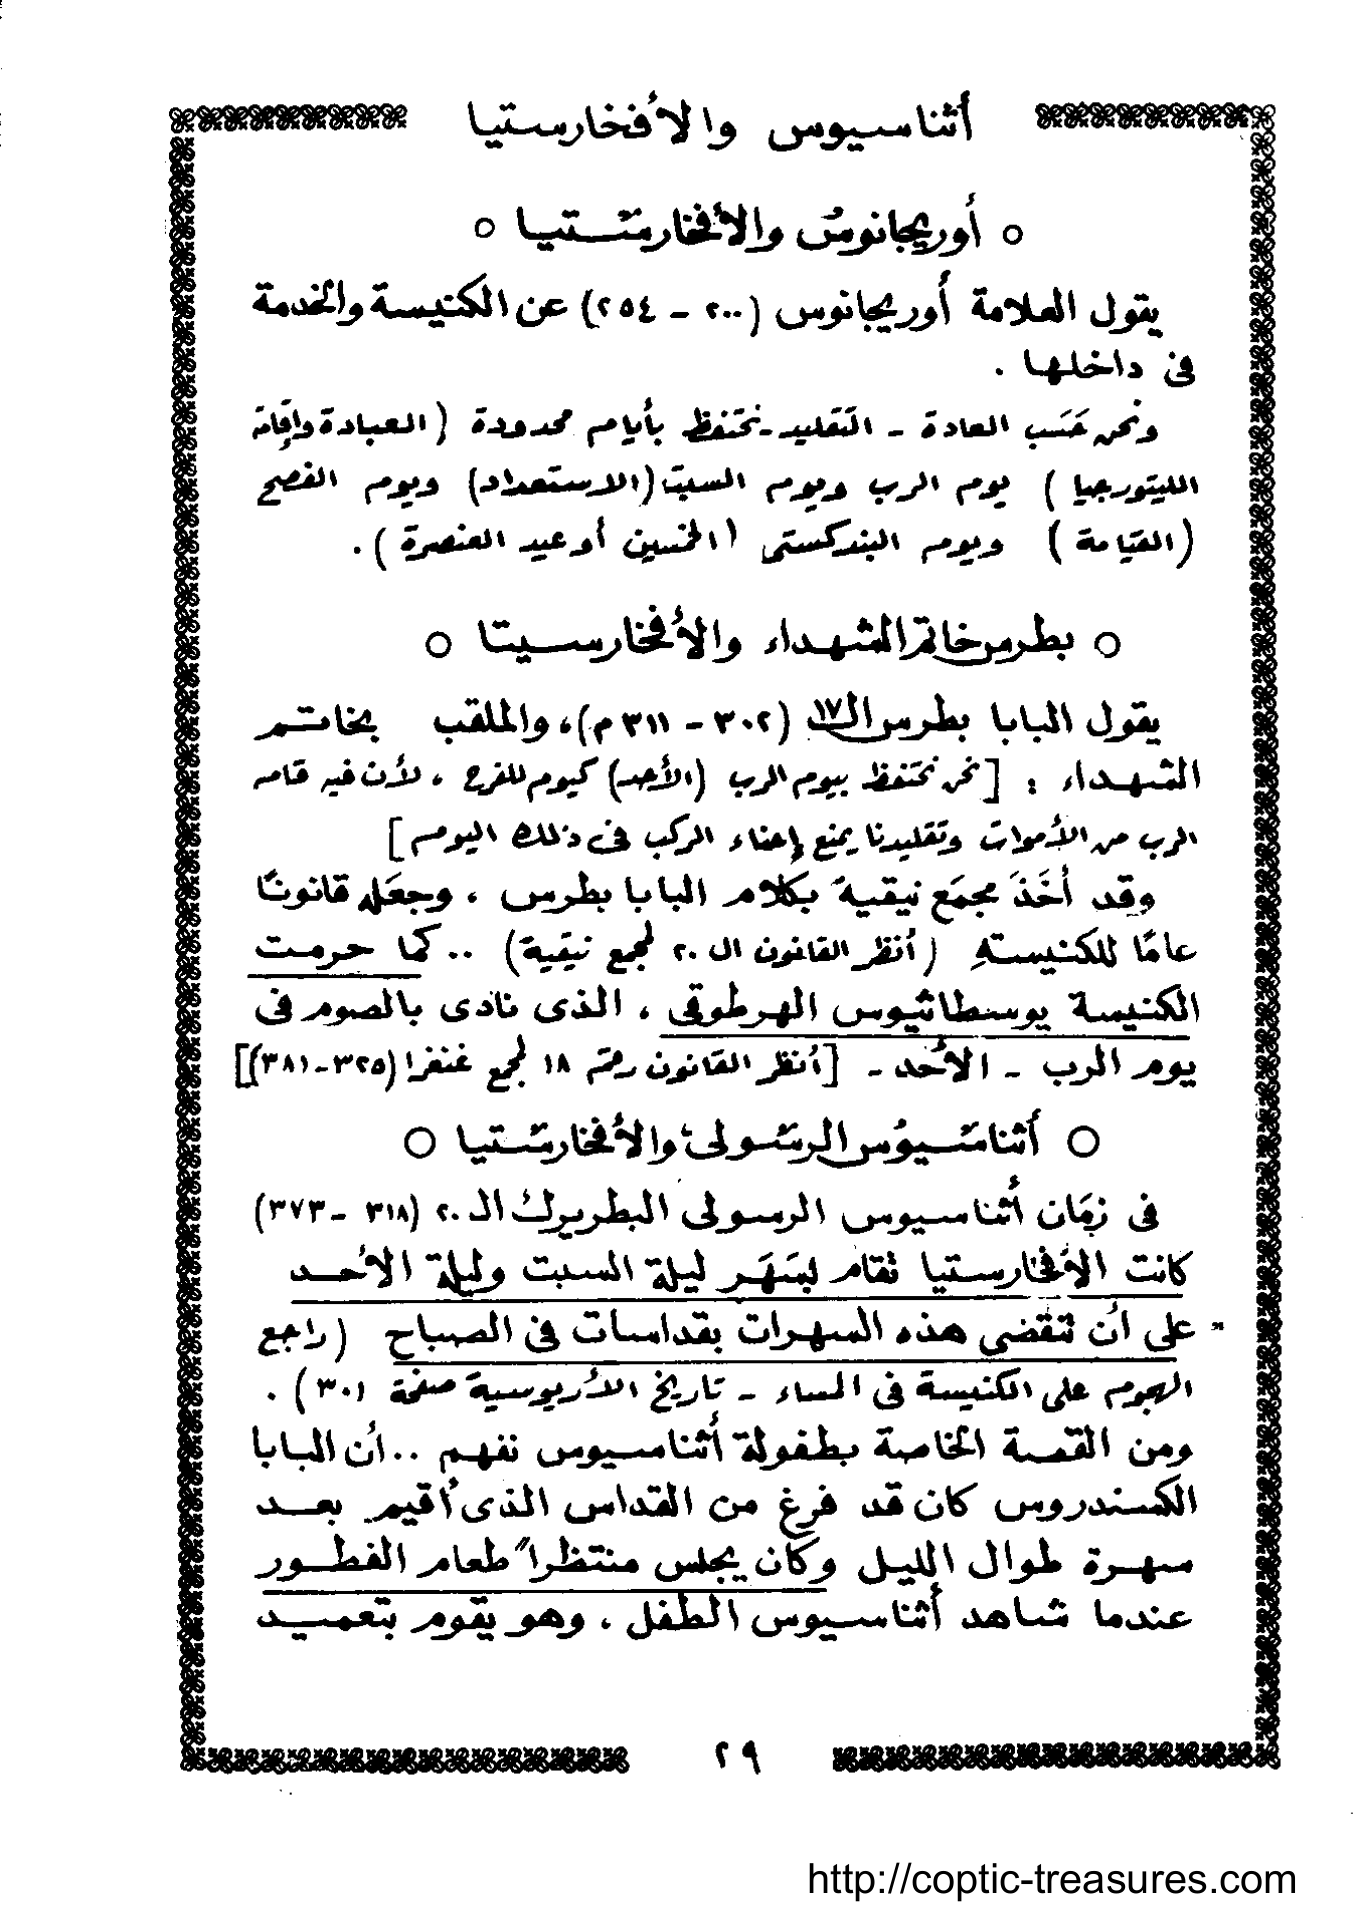 أثناسيوس والأفخارستيا
○ أوريجانوس والأفخارستيا ○
يقول العلامة أوريجانوس (٢٠٠ - ٢٥٤) عن الكنيسة والخدمة
فى داخلها .
ونحن حَسَب العادة - التقليد - نحتفظ بأيام محدودة ( العبادة وإقامة
الليتورجيا ) يوم الرب ويوم السبت (الاستعداد) ويوم الفصح
(القيامة ) ويوم البندكستى (الخمسين أو عيد العنصرة ) .
○ بطرس خاتم الشهداء والأفخارسيتا ○
يقول البابا بطرس الـ ١٧ (٣٠٢ - ٣١١ م)، والملقب بخاتم
الشهداء : [نحن نحتفظ بيوم الرب (الأحد) كيوم للفرح ، لأن فيه قام
الرب من الأموات وتقليدنا يمنع إحناء الركب فى ذلك اليوم]
وقد أخَذَ مجمَع نيقية بكلام البابا بطرس ، وجعَله قانونًا
عامًا للكنيسة ( أنظر القانون ال ٢٠ لمجمع نيقية) .. كما حرمت
الكنيسة يوسطاثيوس الهرطوقى ، الذى نادى بالصوم فى
يوم الرب - الأحد - [أنظر القانون رقم ١٨ لمجمع غنغرا (٣٢٥-٣٨١)]
○ أثناسيوس الرسولى والأفخارستيا ○
فى زمَان أثناسيوس الرسولى البطريرك الـ ٢٠ (٣١٨ - ٣٧٣)
كانت الأفخارستيا تقام بسَهَر ليلة السبت وليلة الأحد
على أن تنقضى هذه السهرات بقداسات فى الصباح (راجع
الهجوم على الكنيسة فى المساء - تاريخ الأريوسية صفحة ٣٠١) .
ومن القصة الخاصة بطفولة أثناسيوس نفهم .. أن البابا
الكسندروس كان قد فرغ من القداس الذى أقيم بعد
سهرة طوال الليل وكان يجلس منتظراً طعام الفطور
عندما شاهد أثناسيوس الطفل ، وهو يقوم بتعميد
٢٩
http://coptic-treasures.com